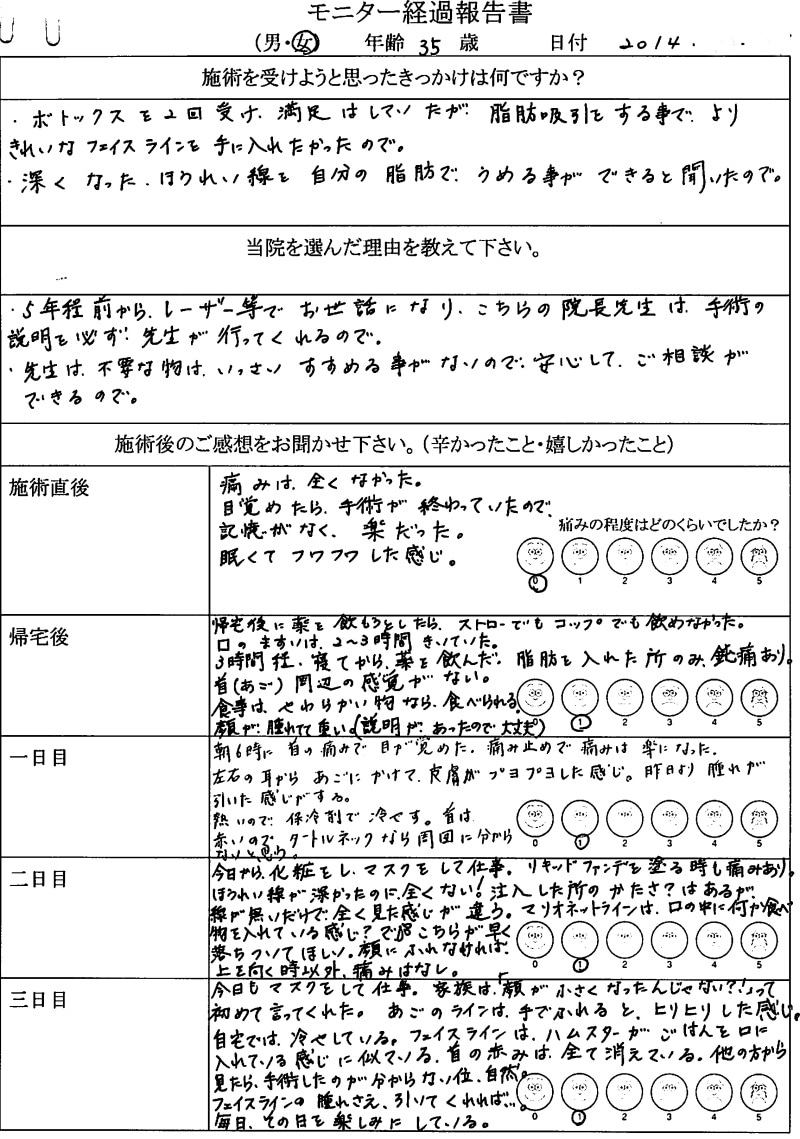 モニター経過報告書
(男・女) 年齢 35 歳 日付 2014.
施術を受けようと思ったきっかけは何ですか?
・ボトックスを2回受け、満足はしていたが、脂肪吸引をする事で、より
きれいなフェイスラインを手に入れたかったので。
・深くなった、ほうれい線を自分の脂肪で、うめる事ができると聞いたので。
当院を選んだ理由を教えて下さい。
・5年程前から、レーザー等でお世話になり、こちらの院長先生は、手術の
説明を必ず、先生が行ってくれるので。
・先生は、不要な物は、いっさいすすめる事がないので、安心して、ご相談が
できるので。
施術後のご感想をお聞かせ下さい。(辛かったこと・嬉しかったこと)
施術直後
痛みは、全くなかった。
目覚めたら、手術が終わっていたので、
記憶がなく、楽だった。
眠くてフワフワした感じ。
痛みの程度はどのくらいでしたか?
0 1 2 3 4 5
帰宅後
帰宅後に薬を飲もうとしたら、ストローでもコップでも飲めなかった。
口のますいは、2~3時間きいていた。
3時間程、寝てから、薬を飲んだ。脂肪を入れた所のみ、鈍痛あり。
首(あご)周辺の感覚がない。
食事は、やわらかい物なら、食べられる。
顔が、腫れてて重い。(説明が、あったので大丈夫)
0 1 2 3 4 5
一日目
朝6時に首の痛みで目が覚めた。痛み止めで痛みは楽になった。
左右の耳からあごにかけて、皮膚がプヨプヨした感じ。昨日より腫れが
引いた感じがする。
熱いので、保冷剤で冷やす。首は、
赤いので、タートルネックなら周囲に分から
ないと思う。
0 1 2 3 4 5
二日目
今日から、化粧をし、マスクをして仕事。リキッドファンデを塗る時も痛みあり。
ほうれい線が深かったのに、全くない!注入した所のかたさ?はあるが、
線が無いだけで、全く見た感じが違う。マリオネットラインは、口の中に何か食べ
物を入れている感じ?で こちらが早く
落ちついてほしい。顔にふれなければ、
上を向く時以外、痛みはなし。
0 1 2 3 4 5
三日目
今日もマスクをして仕事。家族は、「顔が小さくなったんじゃない?!」って
初めて言ってくれた。あごのラインは、手でふれると、ヒリヒリした感じ。
自宅では、冷やしている。フェイスラインは、ハムスターがごはんを口に
入れている感じに似ている。首の赤みは、全て消えている。他の方から
見たら、手術したのが分からない位、自然。
フェイスラインの腫れさえ、引いてくれれば…。
毎日、その日を楽しみにしている。
0 1 2 3 4 5